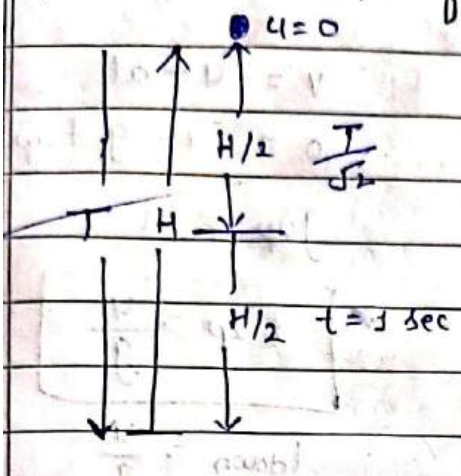 u=0
H/2 T/√2
T H
H/2 t = 1 sec